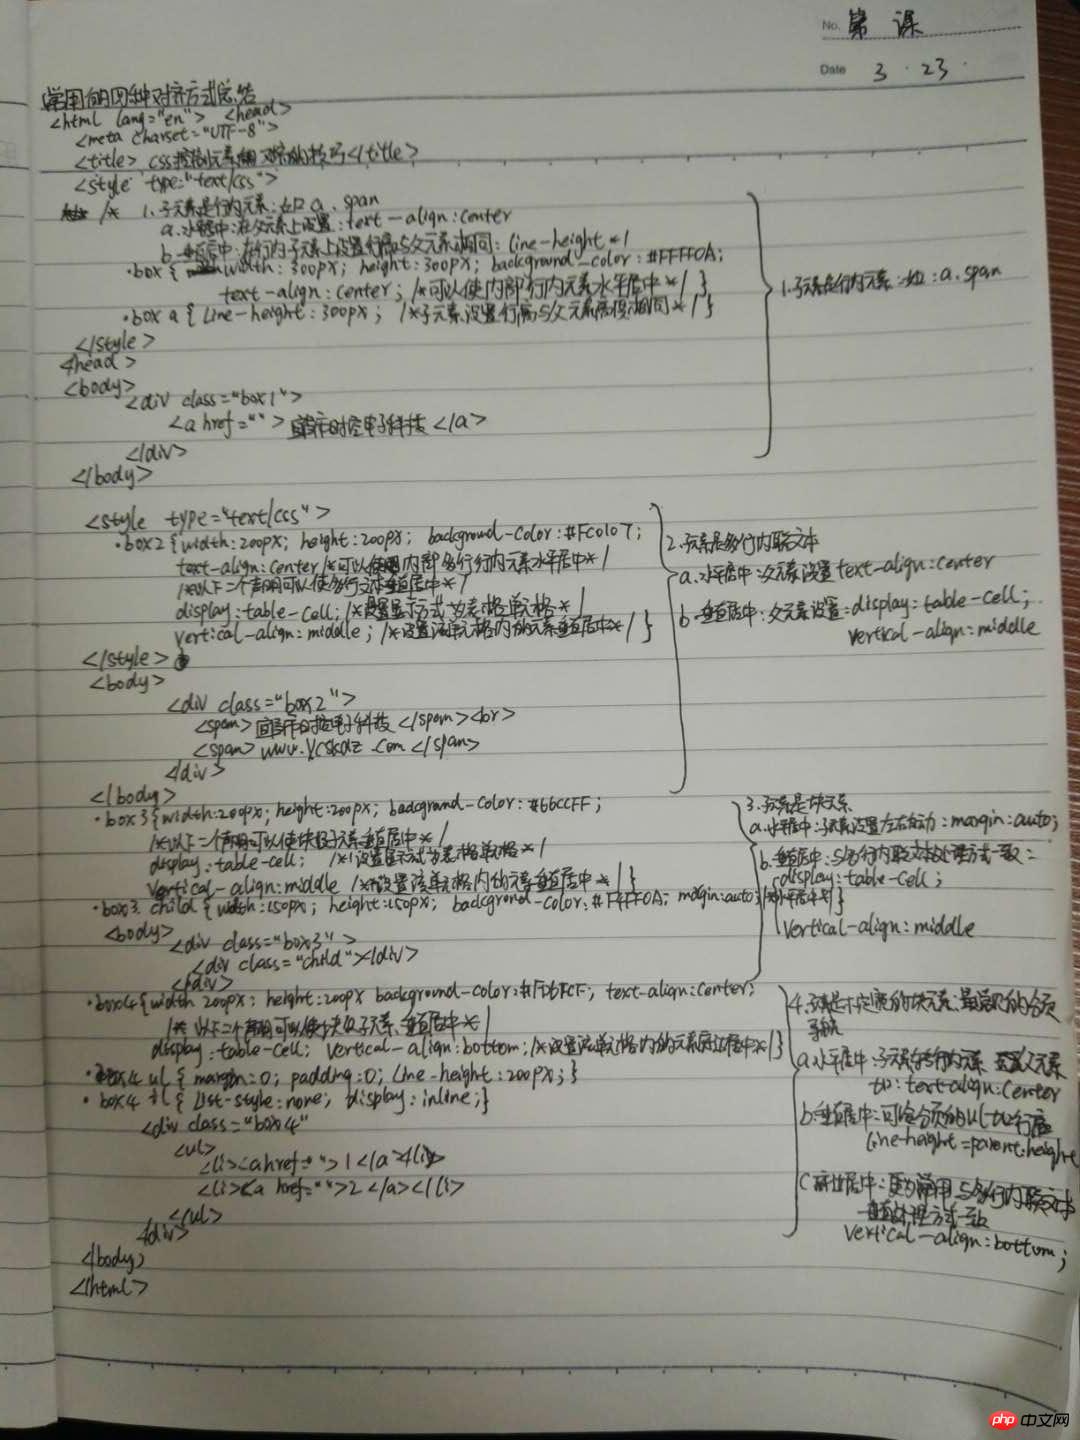 No. 第 课
Date 3 · 23 ·
常用的四种对齐方式总结
<html lang="en"> <head>
<meta charset="UTF-8">
<title> css控制元素 对齐的技巧</title>
<style type="text/css">
/* 1.子元素是行内元素:如 a、span
a.水平居中:在父元素上设置:text-align:center
b.垂直居中:在行内子元素上设置行高与父元素相同:line-height */
.box { width:300px; height:300px; background-color:#FFFF0A;
text-align:center; /*可以使内部行内元素水平居中*/ }
.box a { Line-height:300px; /*子元素设置行高与父元素高度相同*/ }
</style>
</head>
<body>
<div class="box1">
<a href=""> 电子科技 </a>
</div>
</body>
1.子元素是行内元素:如:a、span
<style type="text/css">
.box2 {width:200px; height:200px; background-color:#FC0107;
text-align:center /*可以使内部多行行内元素水平居中*/
/*以下二个声明可以使多行文本垂直居中*/
display:table-cell; /*设置显示方式为表格单元格*/
vertical-align:middle; /*设置该单元格内的元素垂直居中*/ }
</style>
<body>
<div class="box2">
<span> 电子科技 </span><br>
<span> www. .com </span>
</div>
</body>
2.子元素是多行内联文本
a.水平居中:父元素设置text-align:center
b.垂直居中:父元素设置:display:table-cell;
vertical-align:middle
.box3{width:200px; height:200px; background-color:#66CCFF;
/*以下二个声明可以使块级子元素垂直居中*/
display:table-cell; /*设置显示方式为表格单元格*/
vertical-align:middle /*设置该单元格内的元素垂直居中*/ }
.box3 .child {width:150px; height:150px; background-color:#F4FF0A; margin:auto; /*水平居中*/ }
<body>
<div class="box3">
<div class="child"></div>
</div>
3.子元素是块元素
a.水平居中:子元素设置左右自动:margin:auto;
b.垂直居中:与多行内联文本处理方式一致:
display:table-cell;
vertical-align:middle
.box4{width 200px; height:200px background-color:#FD6FCF; text-align:center;
/* 以下二个声明可以使块级子元素垂直居中*/
display:table-cell; vertical-align:bottom; /*设置该单元格内的元素底边居中*/ }
.box4 ul { margin:0; padding:0; Line-height:200px; }
.box4 li { List-style:none; display:inline; }
<div class="box4"
<ul>
<li><a href="">1</a></li>
<li><a href="">2</a></li>
</ul>
</div>
</body>
</html>
4.子元素是不定宽的块元素:最常见的分页
导航
a.水平居中:子元素转行内元素 父元素
加:text-align:center
b.垂直居中:可给分页的ul加行高
line-height=parent.height
c.底边居中:更为常用,与多行内联文本
垂直处理方式一致
vertical-align:bottom;
php 中文网